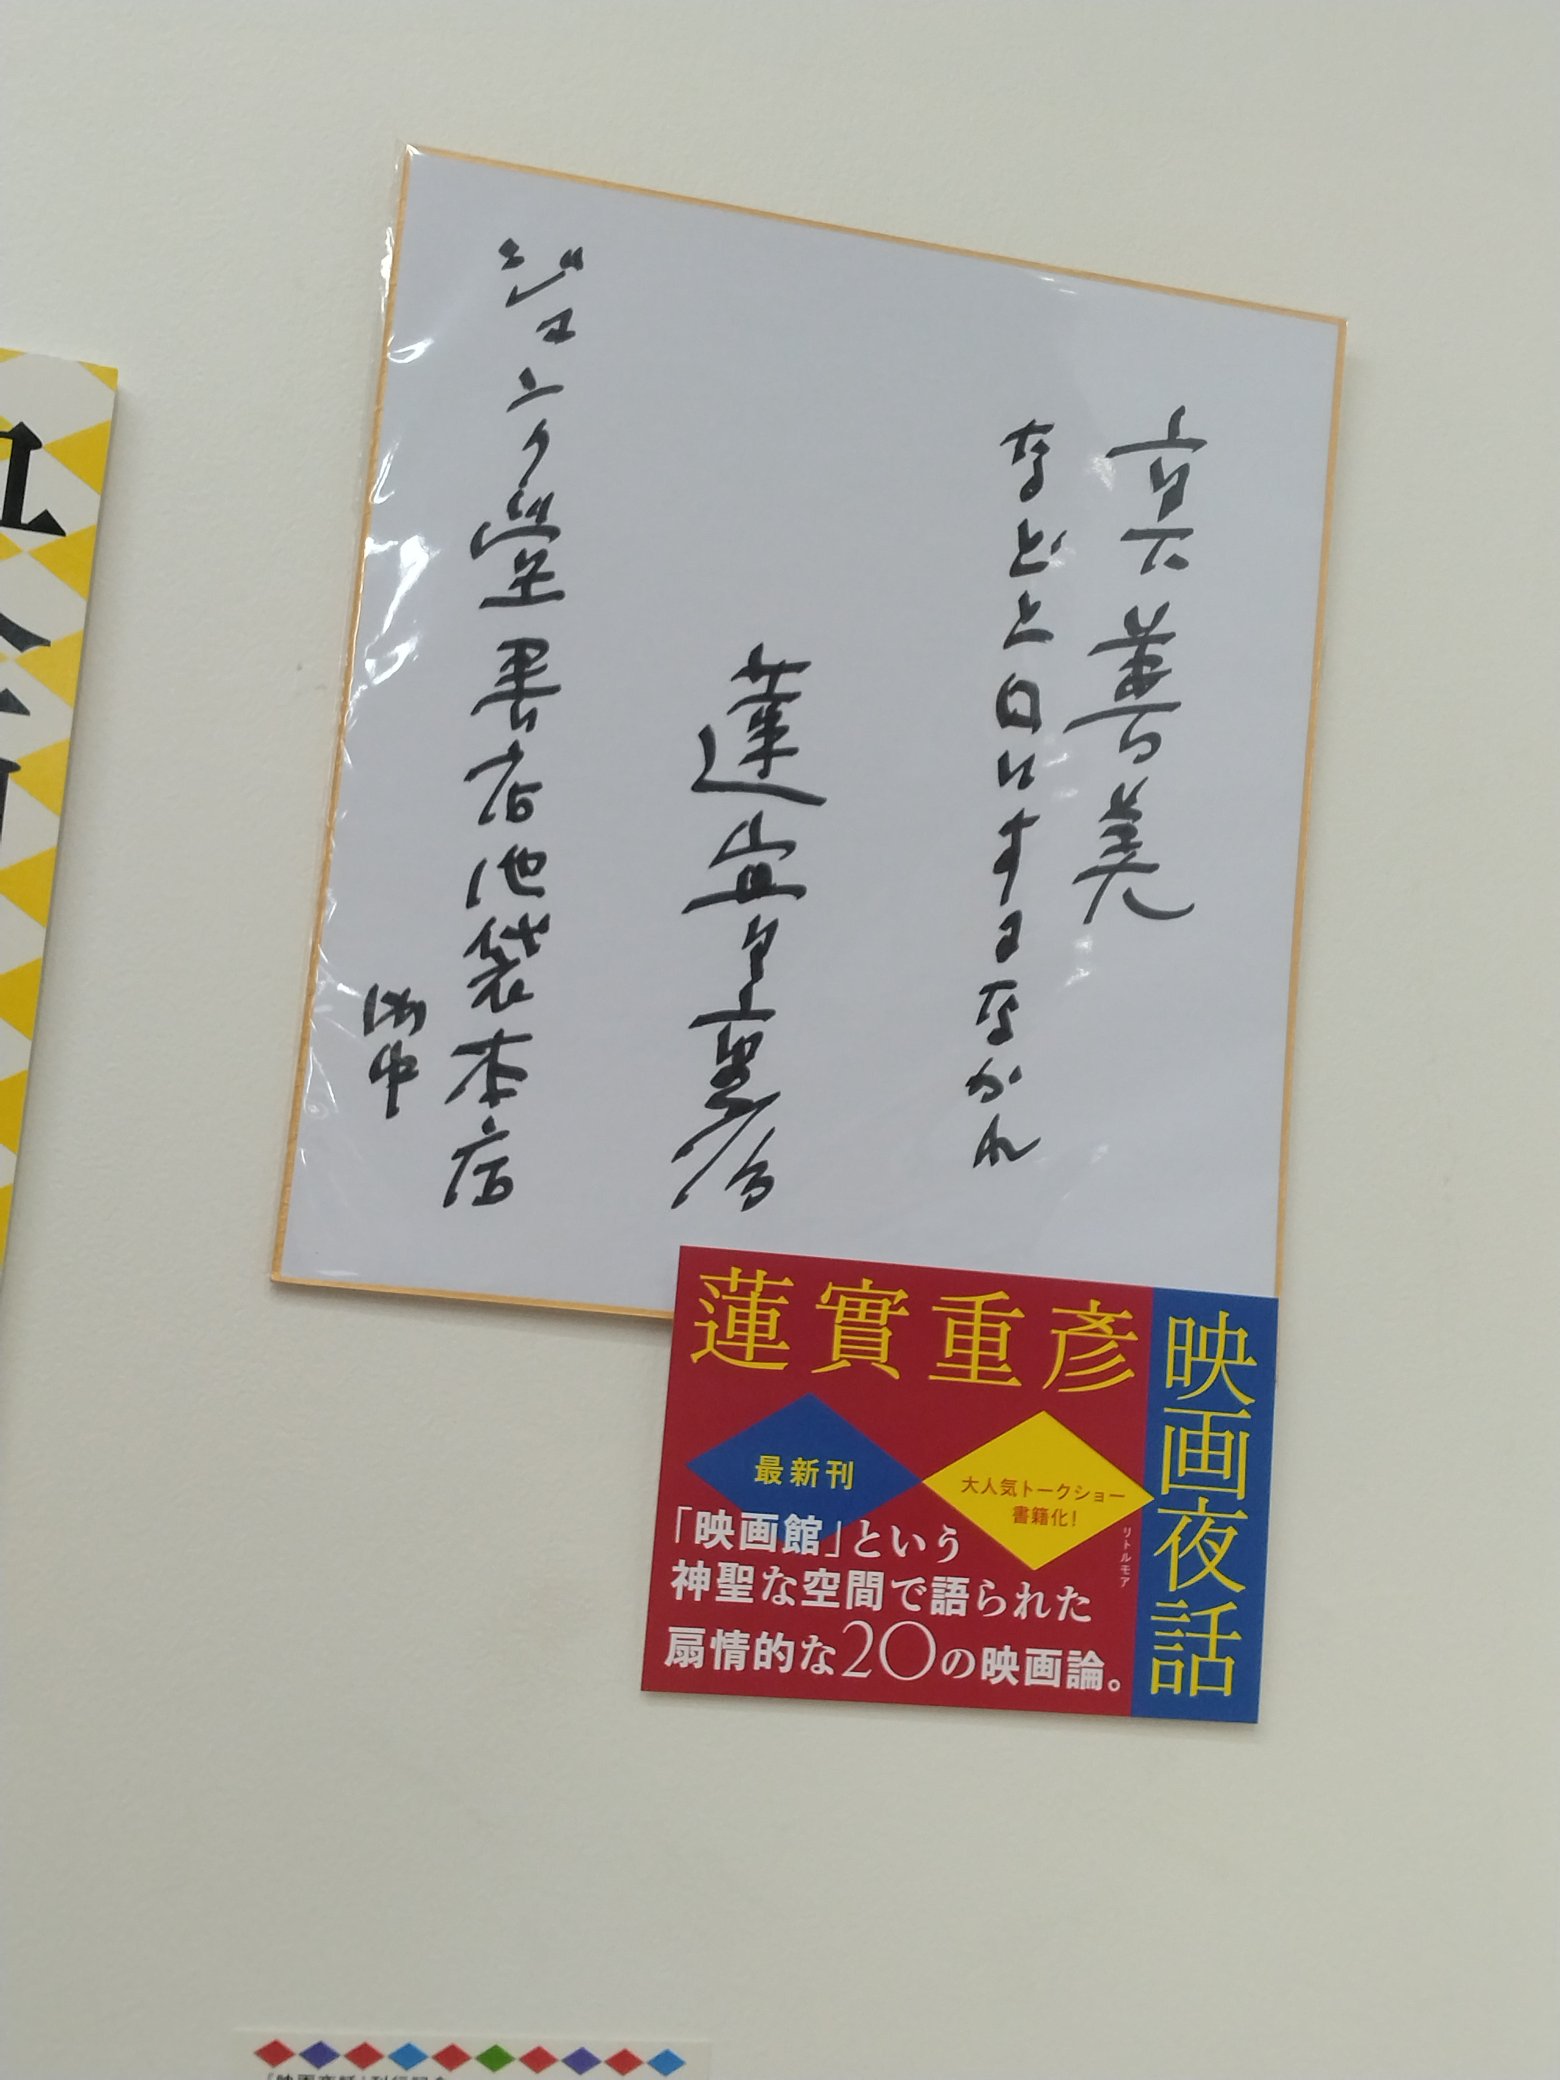 真善美
などと口にするなかれ
蓮實重彥
ジュンク堂書店池袋本店
御中
蓮實重彥
映画夜話
最新刊
大人気トークショー
書籍化!
リトルモア
「映画館」という
神聖な空間で語られた
扇情的な20の映画論。